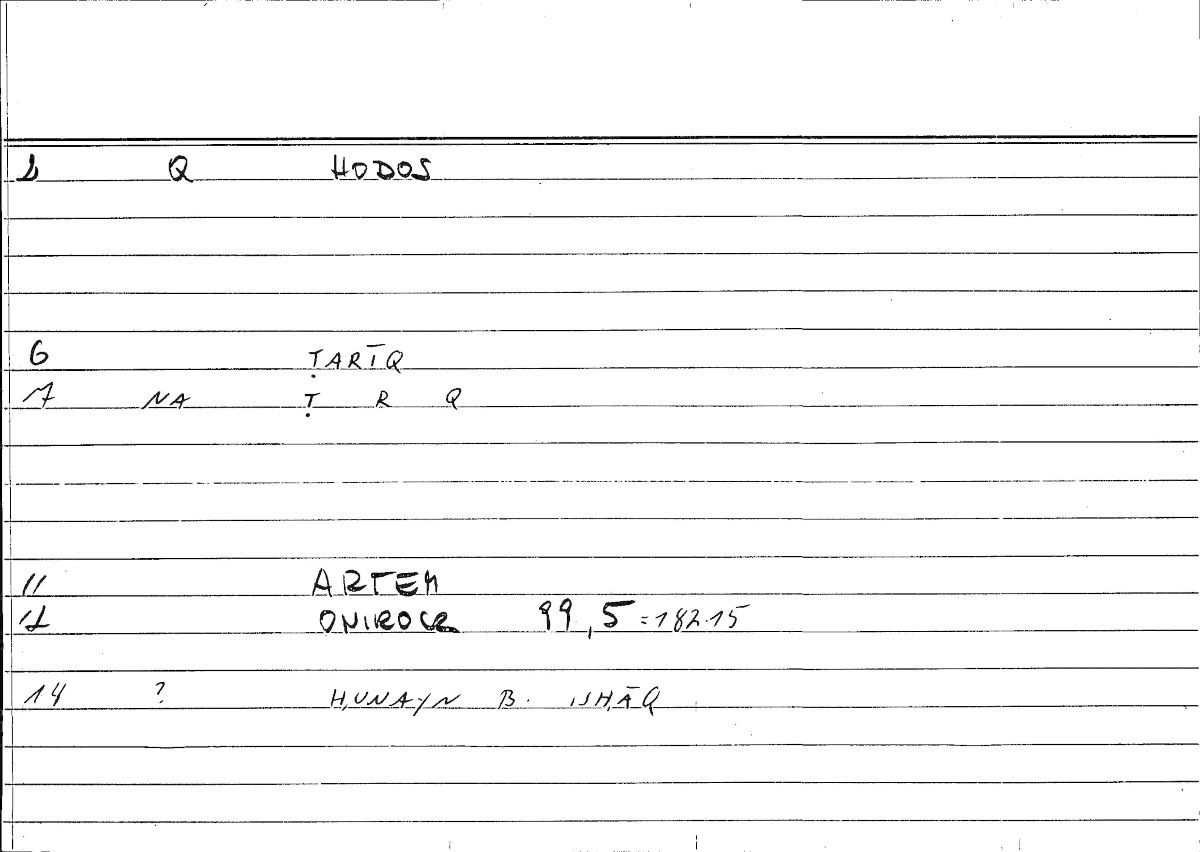 1 Q HODOS
6 ṬARĪQ
7 NA Ṭ R Q
11 ARTEM
12 ONIROCR 99,5=182.15
14 ? ḤUNAYN B. ISḤĀQ